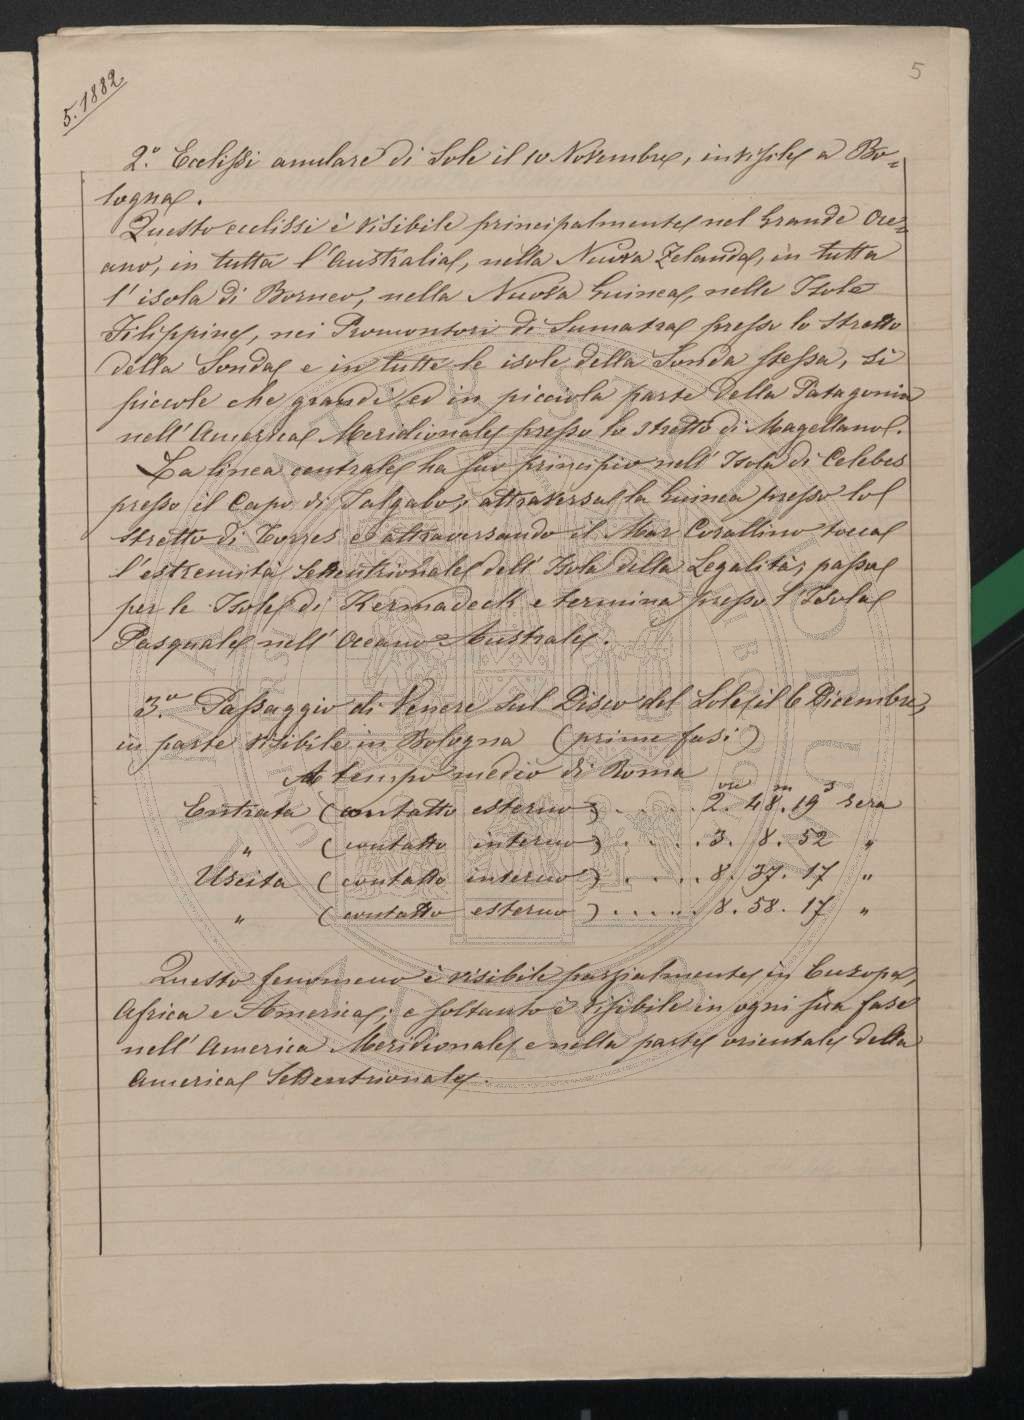 5
5. 1882
2.° Ecclissi anulare di Sole il 10 Novembre, invisibile a Bo=
logna.
Questo ecclissi è visibile principalmente nel Grande Oce=
ano, in tutta l'Australia, nella Nuova Zelanda, in tutta
l'isola di Borneo, nella Nuova Guinea, nelle Isole
Filippine, nei Promontori di Sumatra presso lo Stretto
della Sonda e in tutte le isole della Sonda stessa, sì
piccole che grandi ed in picciola parte della Patagonia
nell'America Meridionale presso lo stretto di Magellano.
La linea centrale ha suo principio nell'Isola di Celebes
presso il Capo di Talgabo, attraversa la Guinea presso lo
Stretto di Torres e attraversando il Mar Corallino tocca
l'estremità Settentrionale dell'Isola della Legalità, passa
per le Isole di Kermadeck e termina presso l'Isola
Pasquale nell'Oceano Australe.
3.° Passaggio di Venere sul Disco del Sole il 6 Dicembre,
in parte visibile in Bologna (prime fasi)
A tempo medio di Roma
ore m s
Entrata (contatto esterno) . . . . . 2. 48. 19 sera
" (contatto interno) . . . . . 3. 8. 52 "
Uscita (contatto interno) . . . . . 8. 37. 17 "
" (contatto esterno) . . . . . . 8. 58. 17 "
Questo fenomeno è visibile parzialmente in Europa,
Africa e America; e soltanto è visibile in ogni sua fase
nell'America Meridionale e nella parte orientale della
America Settentrionale.